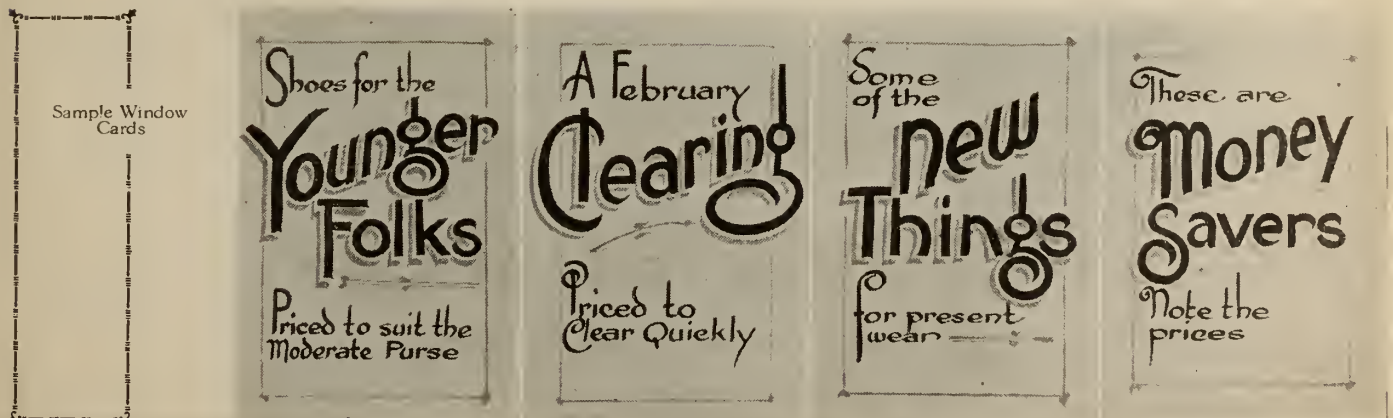 Sample Window
Cards
Shoes for the
Younger
Folks
Priced to suit the
Moderate Purse
A February
Clearing
Priced to
Clear Quickly
Some
of the
new
Things
for present
wear
These are
Money
Savers
Note the
prices